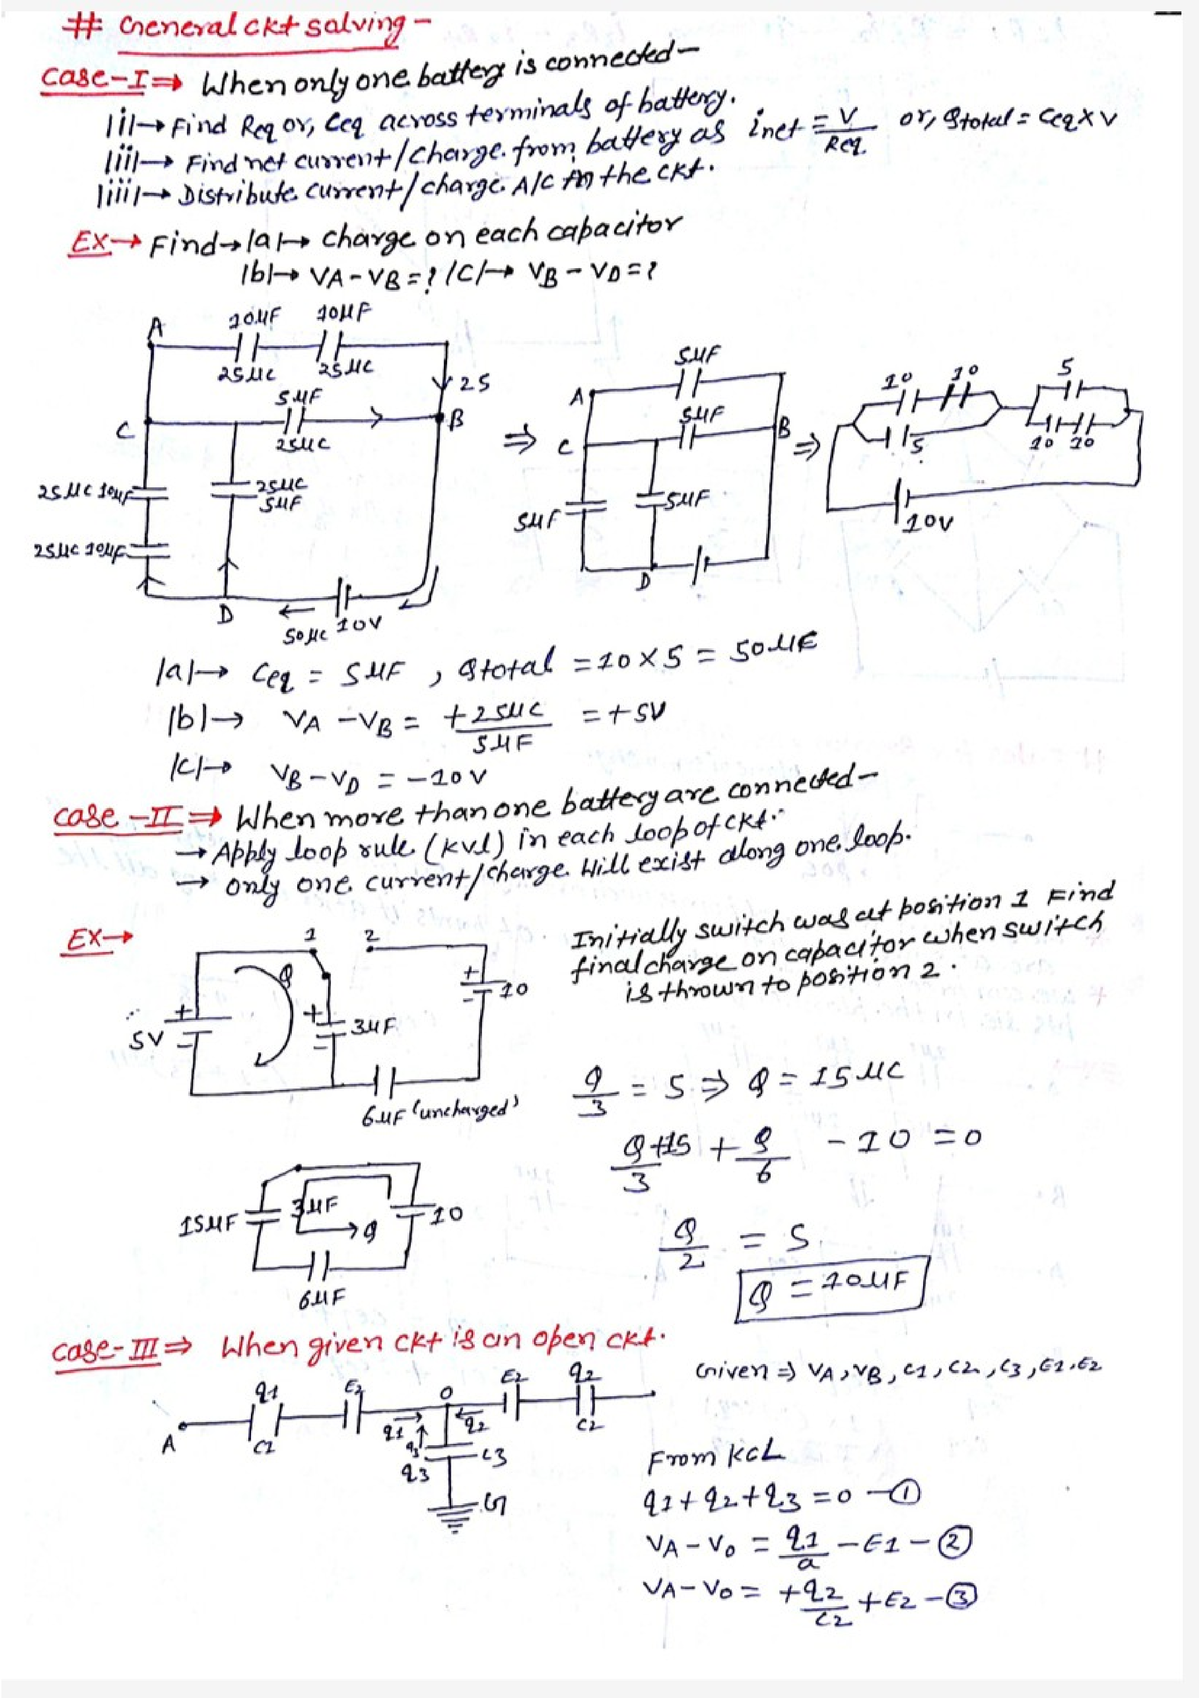 # General ckt salving -
Case-I ⇒ When only one battery is connected -
|i|→ Find Req or, Ceq across terminals of battery.
|ii|→ Find net current/charge from battery as inet = V/Req. or, Qtotal = Ceq x V
|iii|→ Distribute current/charge A/C to the ckt.
EX→ Find→ |a|→ charge on each capacitor
|b|→ VA - VB = ? |c|→ VB - VD = ?
A 10μF 10μF
25μC 25μC
25
5μF
C 25μC B
25μC 10μF 25μC
5μF
25μC 10μF
D 50μC 10V
5μF
A
5μF
⇒ C B
5μF 5μF
D
⇒ 10 10 5
5 10 10
10V
|a|→ Ceq = 5μF , Qtotal = 10 x 5 = 50μF
|b|→ VA - VB = +25μC/5μF = +5V
|c|→ VB - VD = -10V
case -II ⇒ When more than one battery are connected -
→ Apply loop rule (kvl) in each loop of ckt.
→ only one current/charge will exist along one loop.
EX→ 1 2
Q + 10 -
+ 5V - + 3μF -
6μF (uncharged)
Initially switch was at position 1 Find
final charge on capacitor when switch
is thrown to position 2.
Q/3 = 5 ⇒ Q = 15μC
Q+15/3 + Q/6 - 10 = 0
15μF 3μF Q 10
6μF
Q/2 = 5
Q = 10μF
case-III ⇒ When given ckt is an open ckt.
Given ⇒ VA, VB, C1, C2, C3, E1, E2
q1 E2 O E2 q2
A C1 q1 q2 C2
q3 C3
G
From KCL
q1 + q2 + q3 = 0 - ①
VA - Vo = q1/a - E1 - ②
VA - Vo = +q2/C2 + E2 - ③